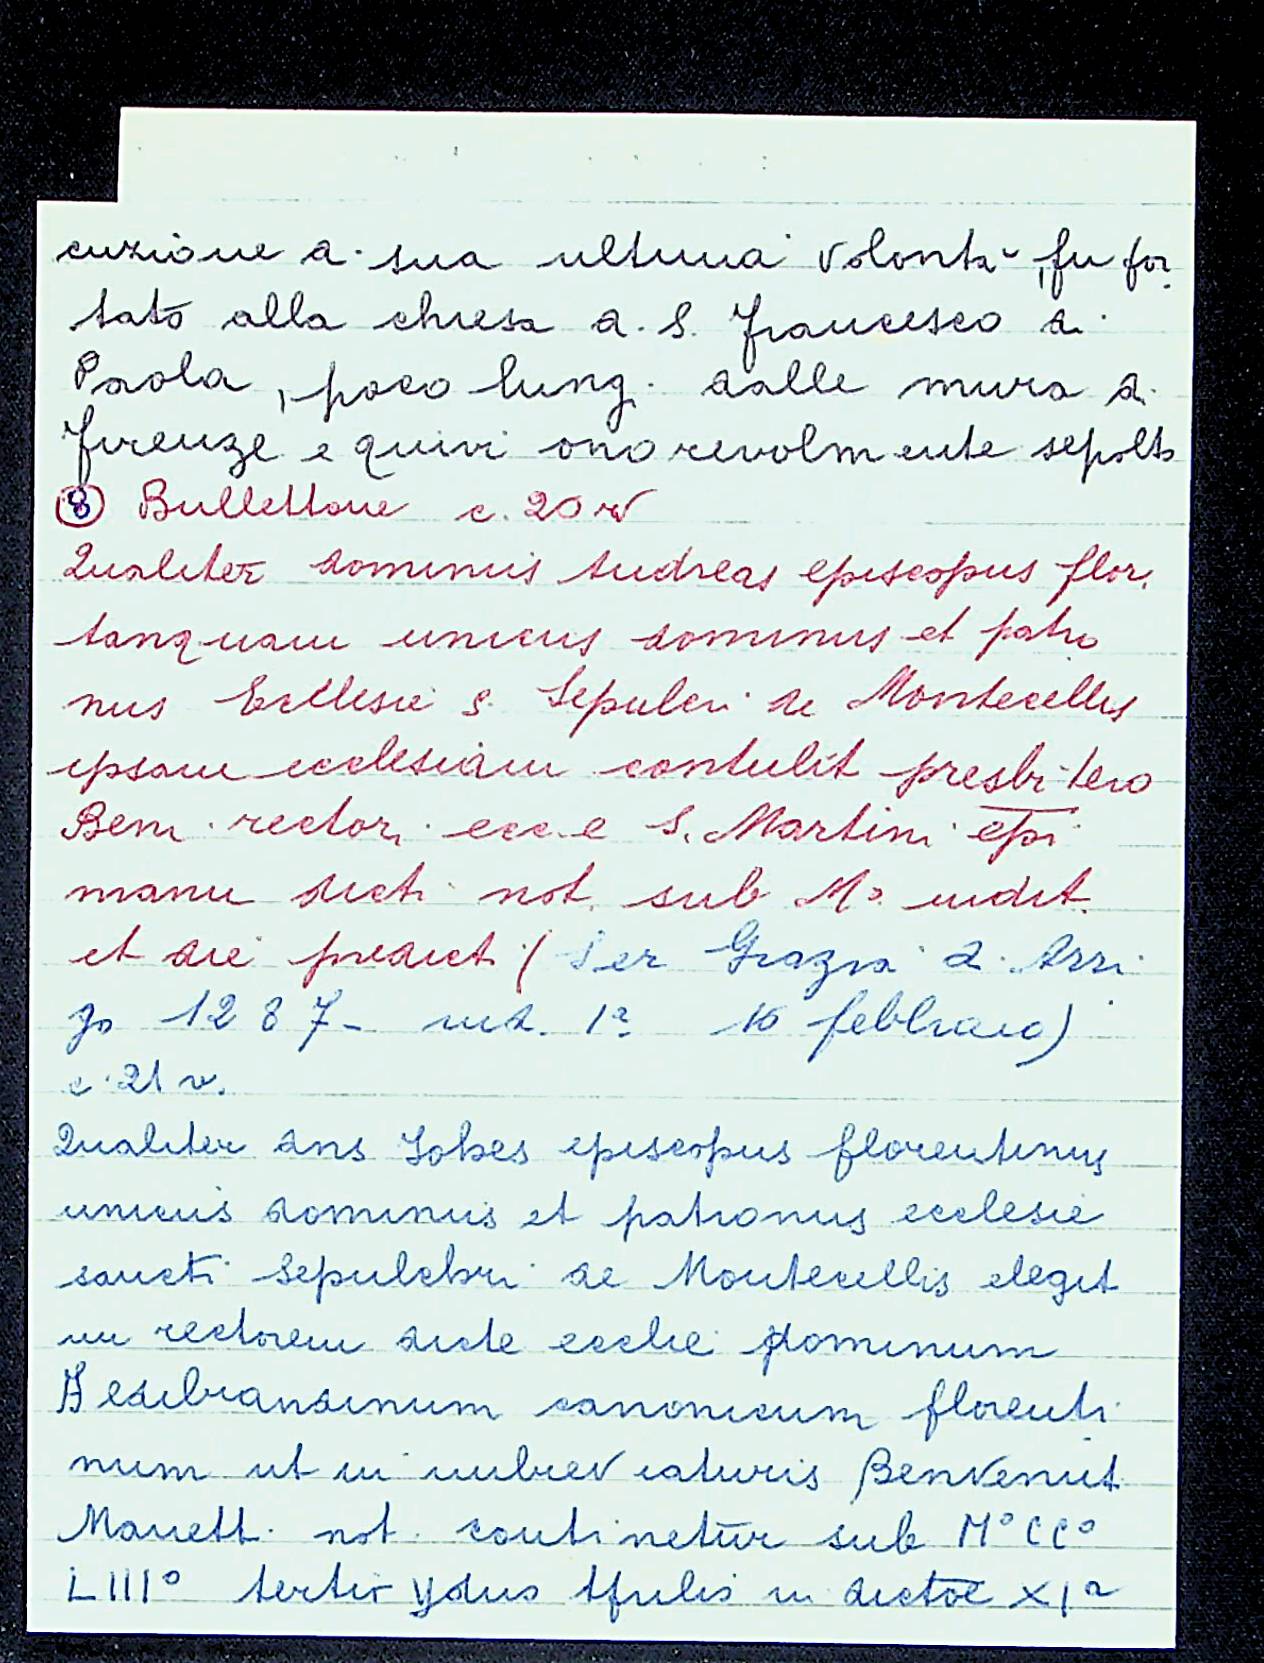 cuzione a sua ultima volontà, fu por
tato alla chiesa d. S. Francesco di
Paola, poco lung. dalle mura d.
Firenze e quivi onorevolmente sepolto
⑧ Bullettone c. 20 v
Qualiter dominus Andreas episcopus flor.
tanquam unicus dominus et patro
nus Ecclesie S. Sepulcri de Montecellis
ipsam ecclesiam contulit presbitero
Beni rectori ecc.e S. Martini epi
manu dicti not. sub Mo. indit.
et die predict (Ser Grazia d. Arri
go 1287 - ind. 1a 16 febbraio)
c. 21 v.
Qualiter dns Johes episcopus florentinus
unicus dominus et patronus ecclesie
sancti Sepulchri de Montecellis elegit
in rectorem dicte ecclie dominum
Ildibrandinum canonicum florenti
num ut in imbreviaturis Benvenut
Manett. not. continetur sub M° CC°
LIII° tertio ydus in dictoe XIa